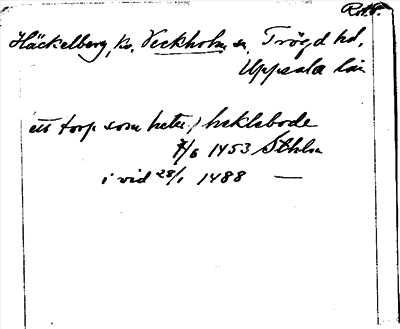 Häckelberg, by, Veckholm sn, Trögd hd,
Uppsala län
ett torp som heter / heklabode
7/6 1453 Sthlm
i vid 28/1 1488 —